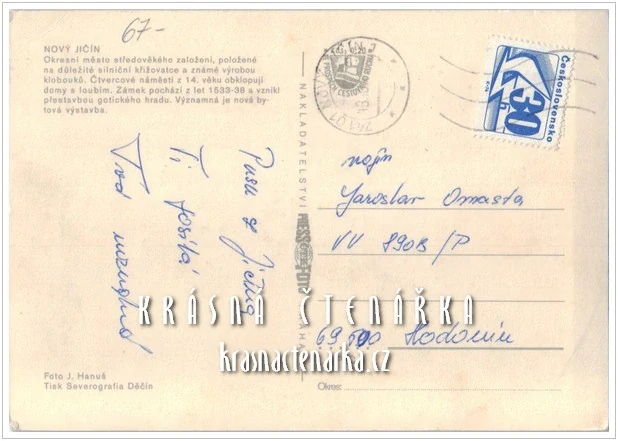 67-
NOVÝ JIČÍN
Okresní město středověkého založení, položené
na důležité silniční křižovatce a známé výrobou
klobouků. Čtvercové náměstí z 14. věku obklopují
domy s loubím. Zámek pochází z let 1533-38 a vznikl
přestavbou gotického hradu. Významná je nová by-
tová výstavba.
Pusu z Jičína
Ti posílá
Tvá
Foto J. Hanuš
Tisk Severografia Děčín
NAKLADATELSTVÍ
PRESSFOTO
PRAHA
741 01 NOVÝ JIČÍN 1
Československo
30h
vojín
Jaroslav Omasta
VV 8908/P
69500 Hodonín
Okres:
KRÁSNÁ ČTENÁŘKA
krasnactenarka.cz